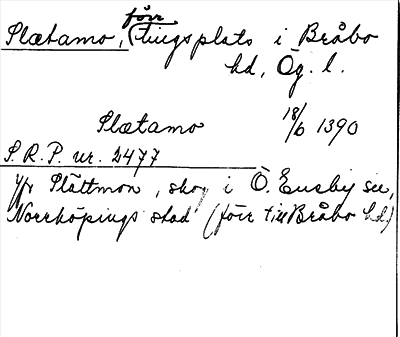 förr
Slætamo, tingsplats i Bråbo
hd, Ög. l.
Slætamo 18/6 1390
S. R. P. nr. 2477
Jfr Slättmon, skog i Ö. Eneby sn,
Norrköpings stad (förr till Bråbo hd)